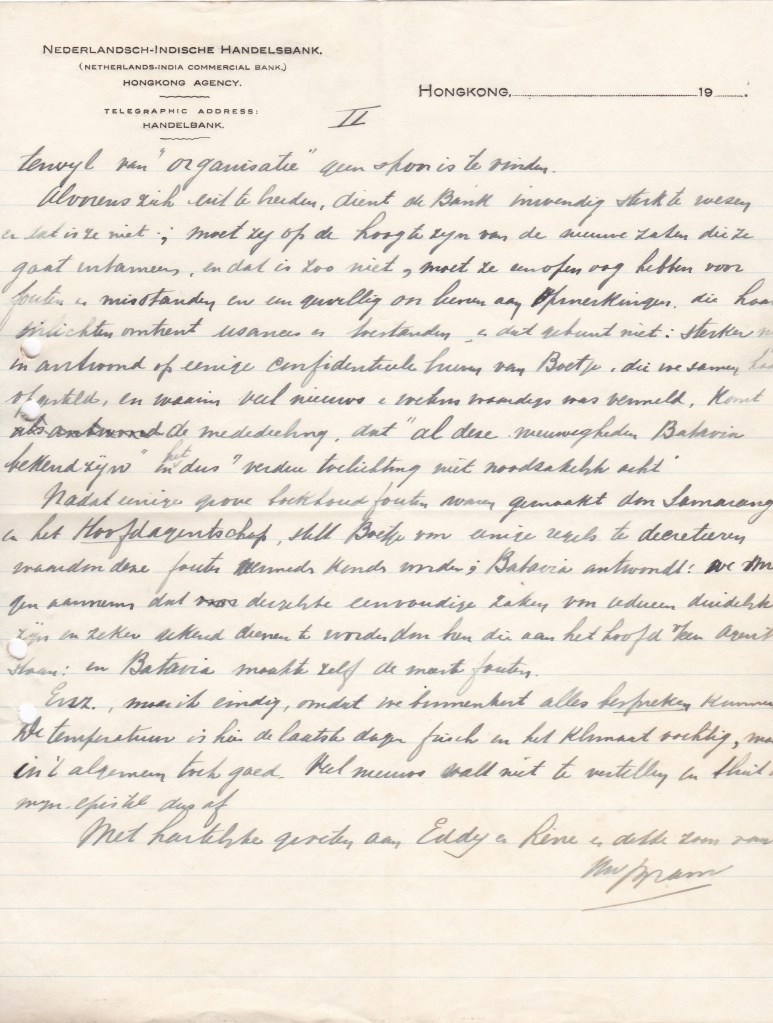 NEDERLANDSCH-INDISCHE HANDELSBANK.
(NETHERLANDS-INDIA COMMERCIAL BANK.)
HONGKONG AGENCY.
TELEGRAPHIC ADDRESS:
HANDELBANK.
HONGKONG, 19
II
terwyl van "organisatie" geen spoor is te vinden.
Alvorens zich uit te breiden, dient de Bank inwendig sterk te wezen
en dat is ze niet; moet zy op de hoogte zyn van de nieuwe zaken die ze
gaat entameeren, en dat is zoo niet, moet ze een open oog hebben voor
fouten en misstanden en een gewillig oor leenen aan opmerkingen, die haar
inlichten omtrent usances en toestanden, en dat gebeurt niet: sterker
in antwoord op eenige confidentieele brieven van Boetje, die we samen
opgesteld, en waarin veel nieuws en was vermeld, komt
als antwoord de mededeeling, dat "al deze nieuwigheden Batavia
bekend zyn" en "het dus verdere toelichting niet noodzakelyk acht"
Nadat eenige grove boekhoud fouten waren gemaakt door Samarang
en het Hoofdagentschap, stelt Boetje voor eenige regels te decreteeren
waardoor deze fouten vermeden konden worden; Batavia antwoordt: we
gen aannemen dat dergelyke eenvoudige zaken voor iedereen duidelyk
zyn en zeker gekend dienen te worden door hen die aan het hoofd v/een Agent
staan: en Batavia maakt zelf de meeste fouten.
Enz., maar ik eindig, omdat we binnenkort alles bespreken kunnen
De temperatuur is hier de laatste dagen frisch en het klimaat vochtig,
in 't algemeen toch goed. Veel nieuws valt niet te vertellen en sluit
myn epistel dus af
Met hartelyke groeten aan Eddy en Réne en dikke zoen van
Uw Bram